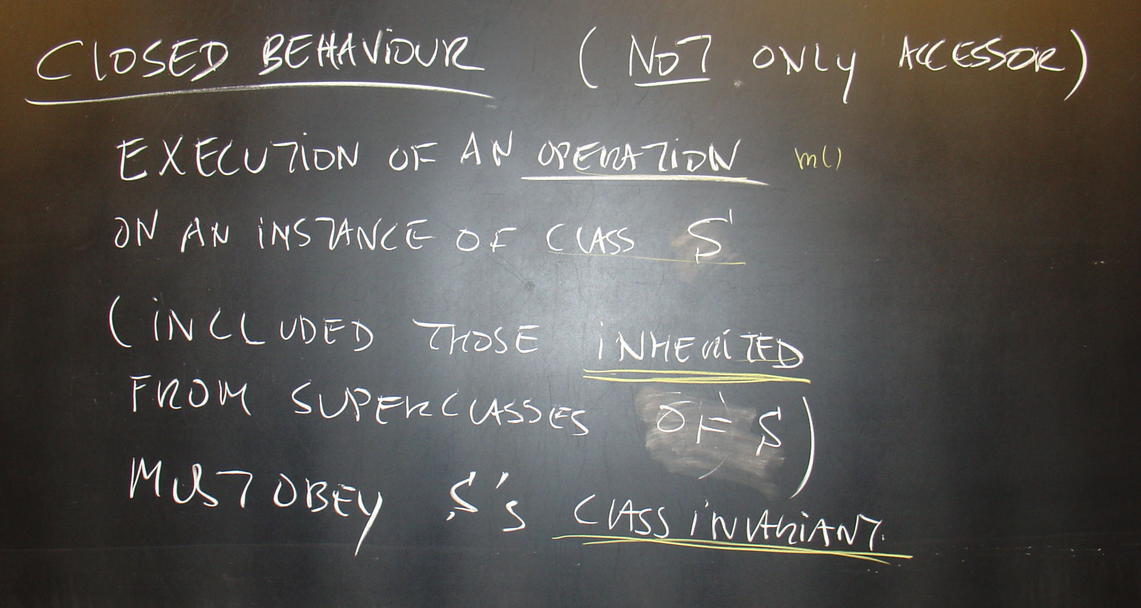 CLOSED BEHAViOUR (NOT ONLY ACCESSOR)
EXECUTiON OF AN OPERATION m()
ON AN iNSTANCE OF CLASS S
(iNCLUDED THOSE iNHERiTED
FROM SUPERCLASSES OF S)
MUST OBEY S's CLASS iNVARiANT.